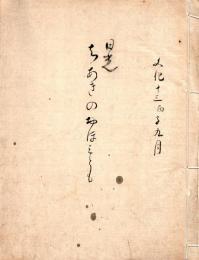 文化十三丙子九月
日光
ちあきのおほみとも